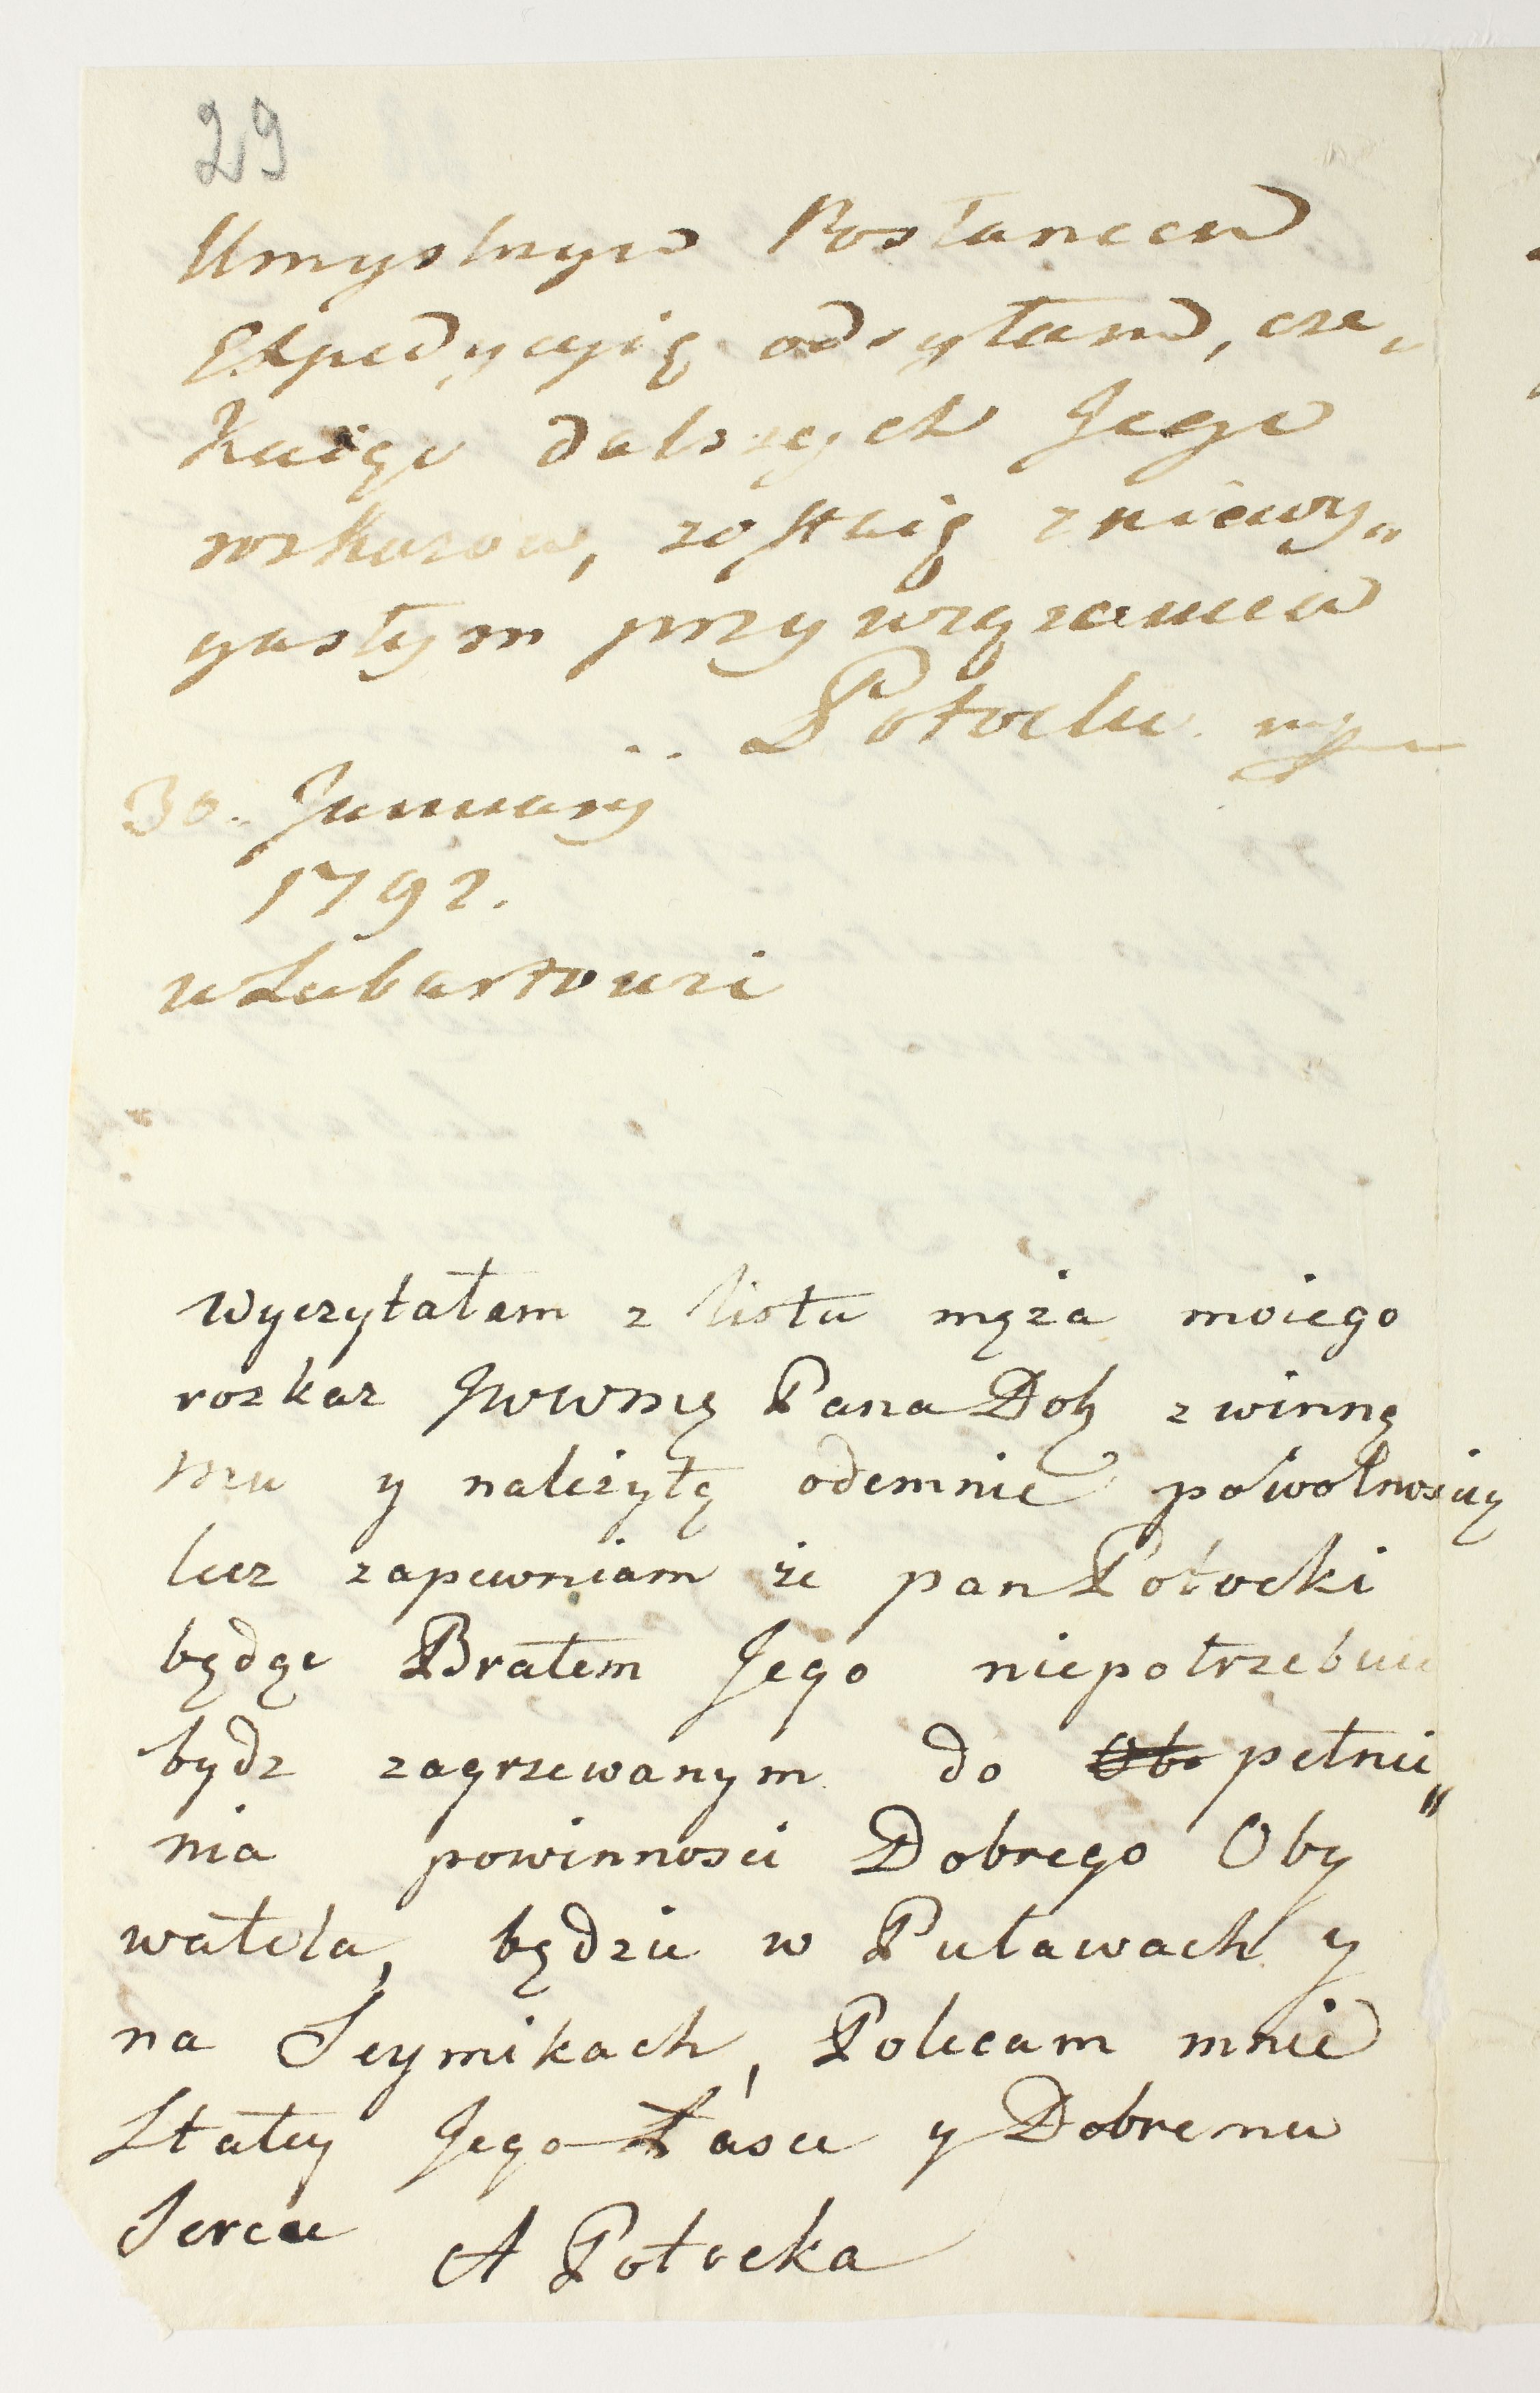 29
Umyslnym Posłancem
Expedycyię odsyłam, cze„
kaiąc dalszych Jego
rozkazow, zostaię z niewy„
gasłym przywiązaniem
Potocki mp
30. January
1792.
w Lubartowie
Wyczytałam z listu męża moiego
rozkaz JWWMę Pana Dob z winną
mu y należytą odemnie powolnoscią
lecz zapewniam że pan Potocki
będąc Bratem Jego niepotrzebuie
bydz zagrzewanym do Obo pełnie„
nia powinnosci Dobrego Oby
watela, będzie w Puławach y
na Seymikach, Polecam mnie
Stałey Jego Łasce y Dobremu
Sercu A Potocka